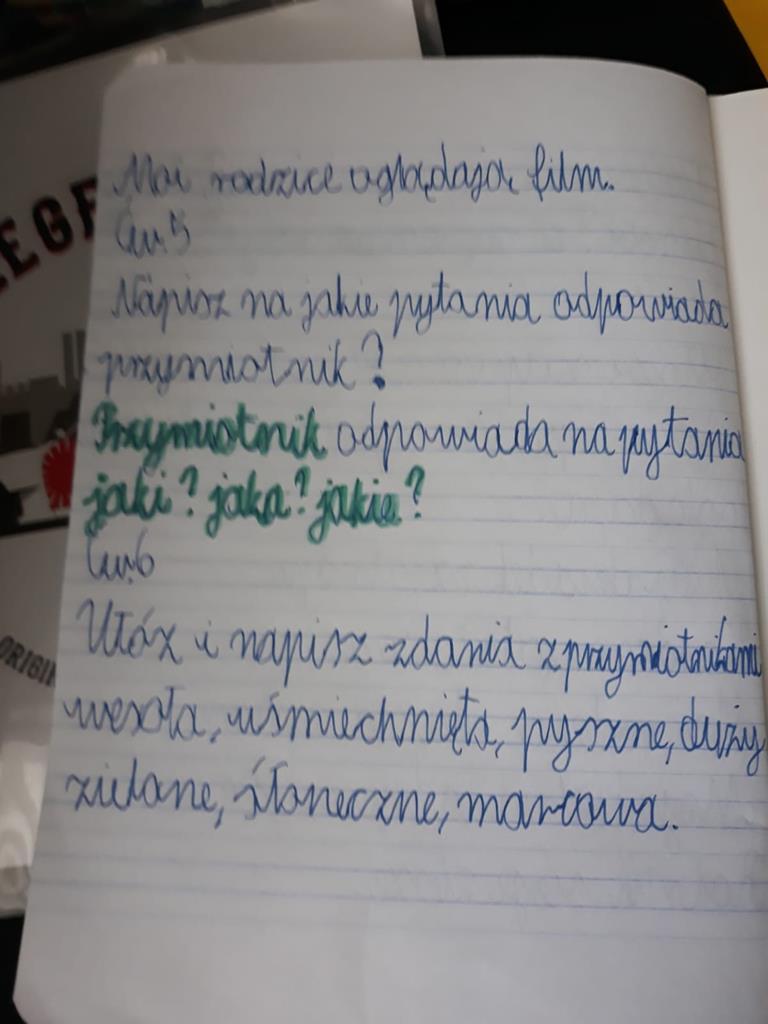 Moi rodzice oglądają film.
Ćw. 5
Napisz na jakie pytania odpowiada
przymiotnik?
Przymiotnik odpowiada na pytania
jaki? jaka? jakie?
Ćw. 6
Ułóż i napisz zdania z przymiotnikami
wesoła, uśmiechnięta, pyszne, duży
zielone, słoneczne, marcowa.
EGE
ORIGIN